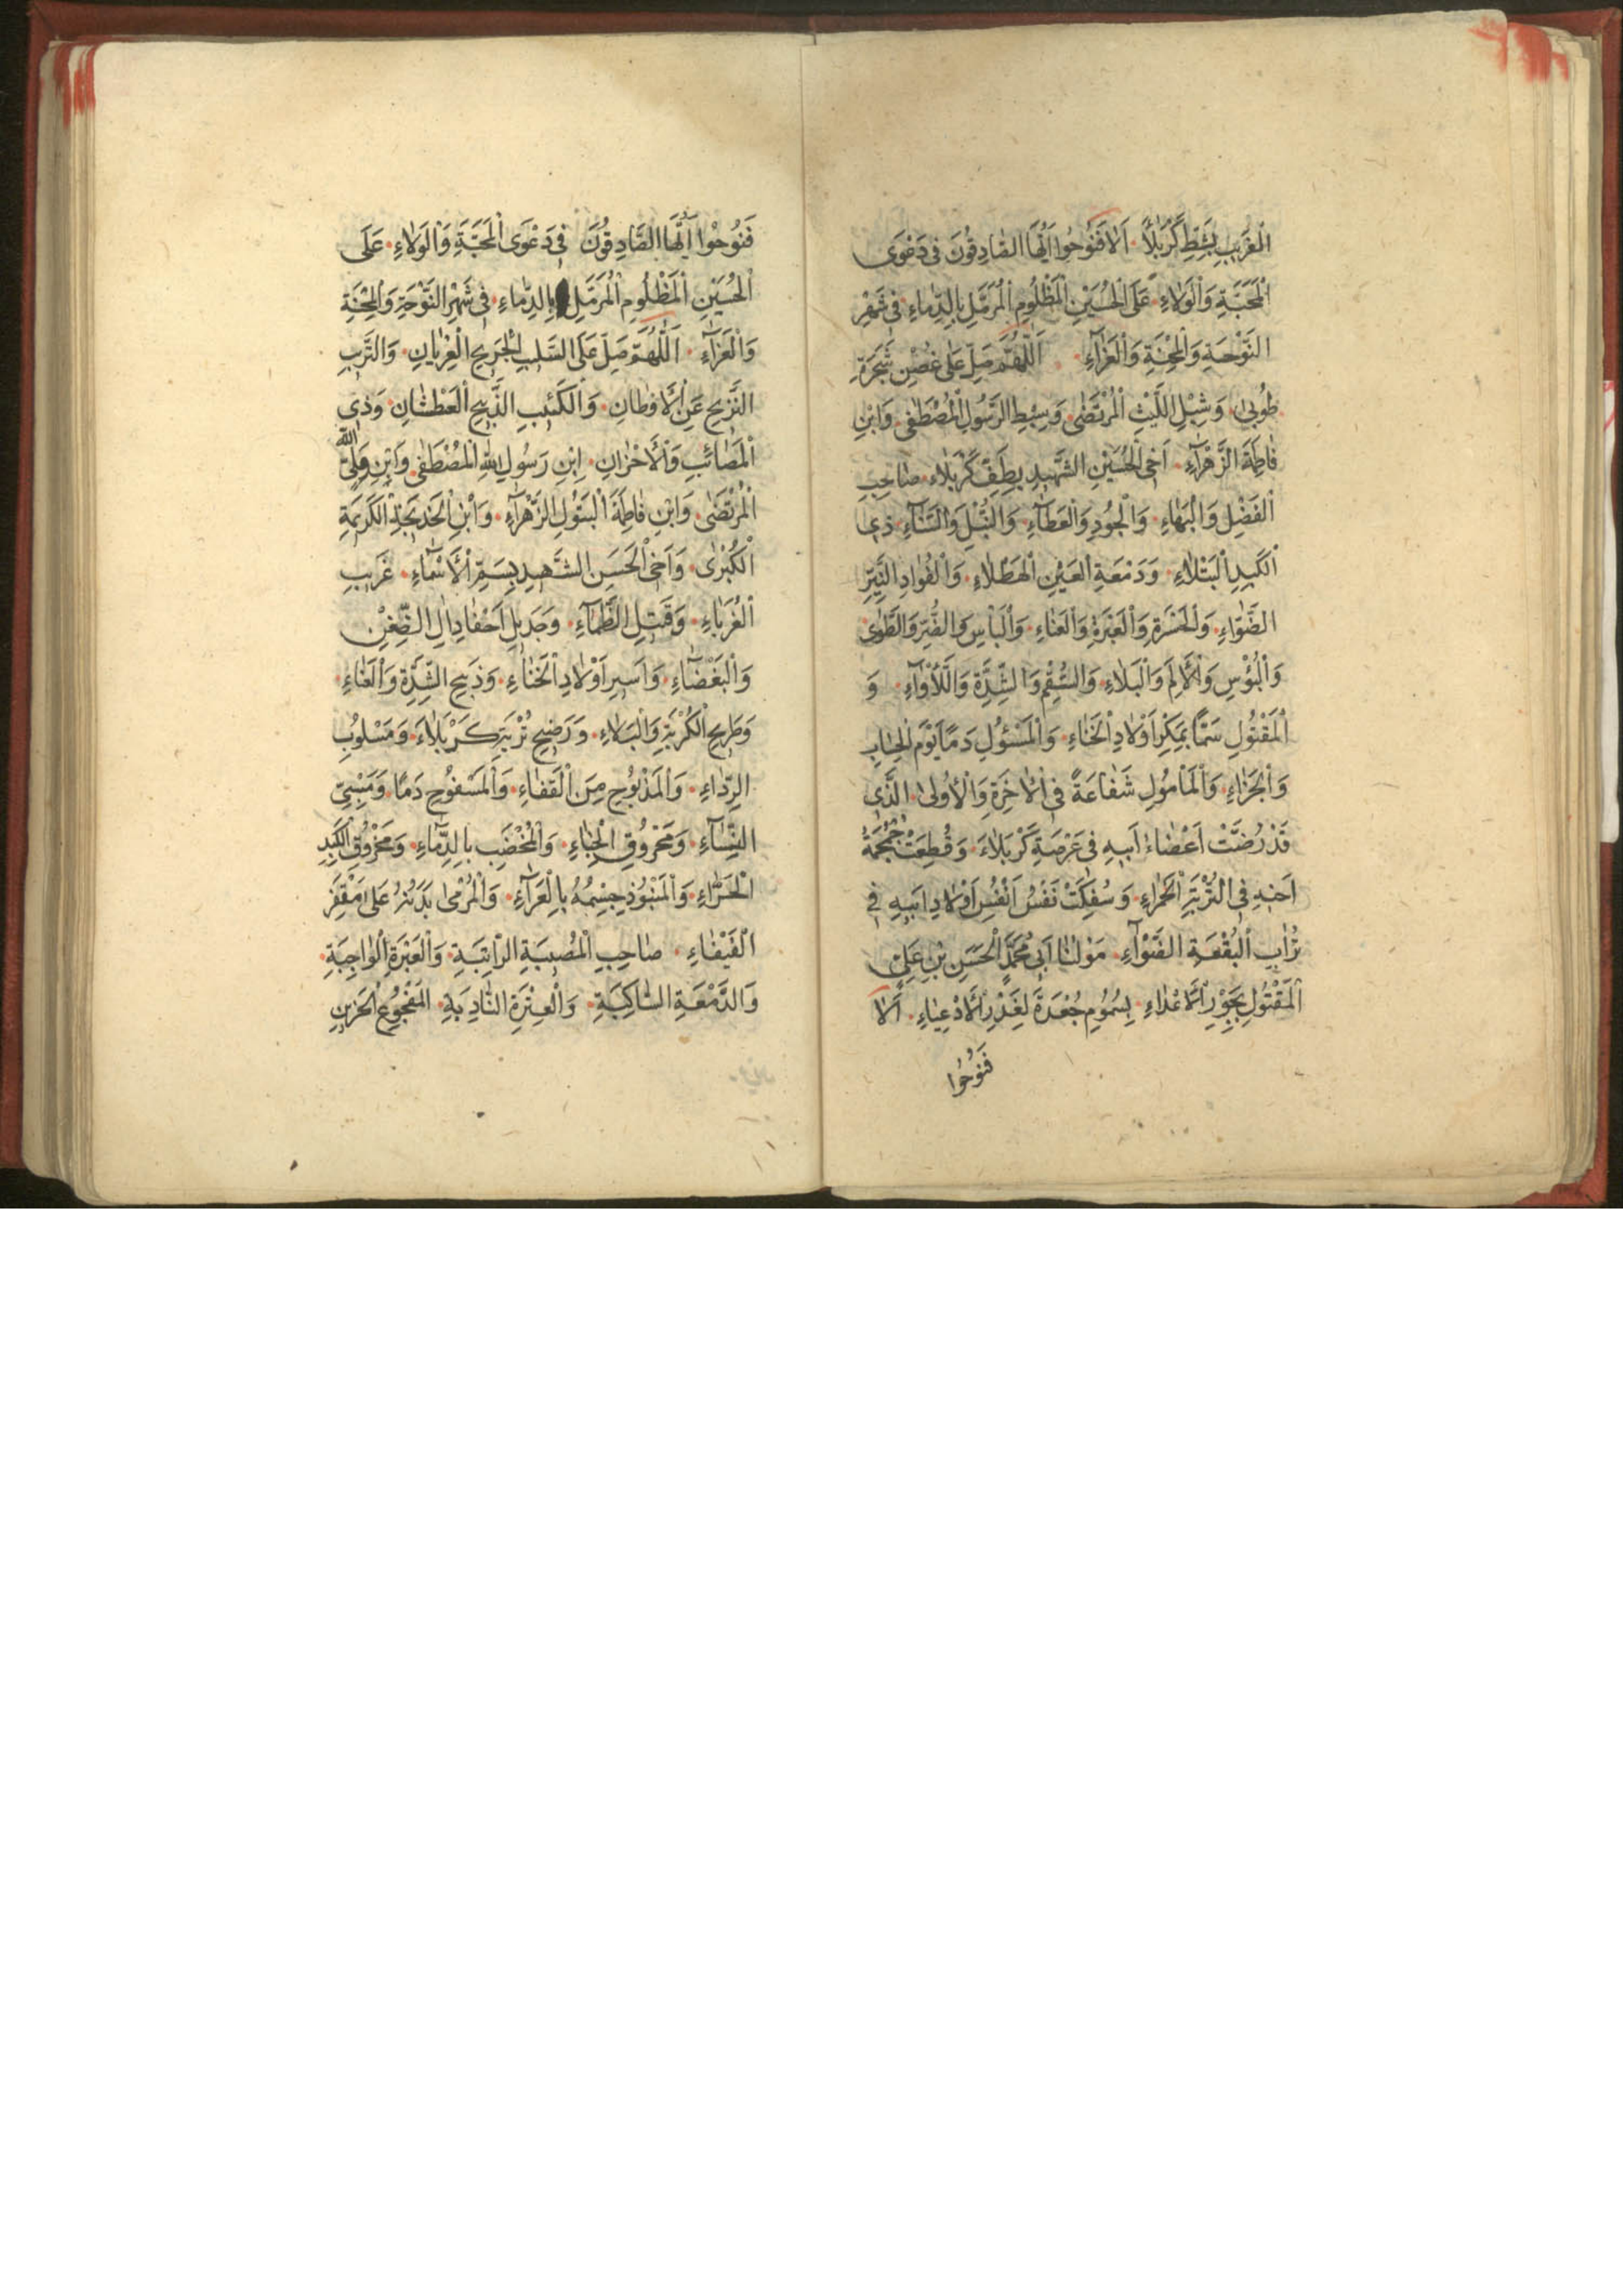 الْغَرِيبِ بِشَطِّ كَرْبَلَا اَلَا فَنُوحُوا اَيُّهَا الصَّادِقُونَ فِي دَعْوَى
الْمَحَبَّةِ وَالْوَلَاءِ عَلَى الْحُسَيْنِ الْمَظْلُومِ الْمُرَمَّلِ بِالدِّمَاءِ فِي شَهْرِ
النَّوْحَةِ وَالْمِحْنَةِ وَالْعَزَاءِ اَللّٰهُمَّ صَلِّ عَلَى غُصْنِ شَجَرَةِ
طُوبَى وَشِبْلِ اللَّيْثِ الْمُرْتَضَى وَسِبْطِ الرَّسُولِ الْمُصْطَفَى وَابْنِ
فَاطِمَةَ الزَّهْرَاءِ اَخِي الْحُسَيْنِ الشَّهِيدِ بِطَفِّ كَرْبَلَاءِ صَاحِبِ
الْفَضْلِ وَالْبَهَاءِ وَالْجُودِ وَالْعَطَاءِ وَالنُّبْلِ وَالسَّنَاءِ ذِي
الْكَبِدِ الْبَتْلَاءِ وَدَمْعَةِ الْعَيْنِ الْهَطْلَاءِ وَالْفُوَادِ
وَالْحَسْرَةِ وَالْعَبْرَةِ وَالْعَنَاءِ وَالْبَأْسِ وَالضُّرِّ وَالطَّوٰى
وَالْبُؤْسِ وَالْاَلَمِ وَالْبَلَاءِ وَالسُّقْمِ وَالشِّدَّةِ وَاللَّأْوَاءِ وَ
الْمَقْتُولِ سَمًّا بِمَكْرِ اَوْلَادِ الْخَنَاءِ وَالْمَسْئُولِ دَمًا يَوْمَ الْحِسَابِ
وَالْجَزَاءِ وَالْمَأْمُولِ شَفَاعَةً فِي الْاٰخِرَةِ وَالْاُولَى الَّذِي
قَدْ رُضَّتْ اَعْضَاءُ اَبِيهِ فِي عَرْصَةِ كَرْبَلَاءَ وَقُطِعَتْ جُمْجُمَةُ
اَخِيهِ فِي التُّرْبَةِ الْحَمْرَاءِ وَسُفِكَتْ نَفْسُ اَنْفُسِ اَوْلَادِ اَبِيهِ فِي
تُرَابِ الْبُقْعَةِ مَوْلٰنَا اَبِي مُحَمَّدٍ الْحَسَنِ بْنِ عَلِيٍّ
الْمَقْتُولِ بِجَوْرِ الْاَعْدَاءِ بِسُمُومِ جُعْدَةَ لِغَدْرِ الْاَدْعِيَاءِ اَلَا
فَنُوحُوا
فَنُوحُوْا اَيُّهَا الصَّادِقُونَ فِي دَعْوَى الْمَحَبَّةِ وَالْوَلَاءِ عَلَى
الْحُسَيْنِ الْمَظْلُومِ الْمُرَمَّلِ بِالدِّمَاءِ فِي شَهْرِ النَّوْحَةِ وَالْمِحْنَةِ
وَالْعَزَاءِ اَللّٰهُمَّ صَلِّ عَلَى السَّلِيبِ الْجَرِيحِ الْعُرْيَانِ وَالتَّرِبِ
النَّزِيحِ عَنِ الْاَوْطَانِ وَالْكَئِيبِ الذَّبِيحِ الْعَطْشَانِ وَذِي
الْمَصَائِبِ وَالْاَحْزَانِ اِبْنِ رَسُولِ اللّٰهِ الْمُصْطَفَى وَابْنِ وَلِيِّ اللّٰهِ
الْمُرْتَضَى وَابْنِ فَاطِمَةَ الْبَتُولِ الزَّهْرَاءِ وَابْنِ الْخَدِيجَةِ الْكَرِيمَةِ
الْكُبْرَى وَاَخِي الْحَسَنِ الشَّهِيدِ بِسَمِّ الْاَسْمَاءِ غَرِيبِ
الْغُرَبَاءِ وَقَتِيلِ الظِّمَاءِ وَجَدِيلِ اَحْقَادِ اٰلِ الضِّغْنِ
وَالْبَغْضَاءِ وَاَسِيرِ اَوْلَادِ الْخَنَاءِ وَذَبِيحِ الشِّدَّةِ وَالْعَنَاءِ
وَطَرِيحِ الْكُرْبَةِ وَالْبَلَاءِ وَرَضِيحِ تُرْبَةِ كَرْبَلَاءَ وَمَسْلُوبِ
الرِّدَاءِ وَالْمَذْبُوحِ مِنَ الْقَفَاءِ وَالْمَسْفُوحِ دَمًا وَمَسْبِيِّ
النِّسَاءِ وَمَحْرُوقِ الْخِبَاءِ وَالْمُخْضَبِ بِالدِّمَاءِ وَمَحْرُوقِ الْكَبِدِ
الْحَرَّاءِ وَالْمَنْبُوذِ جِسْمُهُ بِالْعَرَاءِ وَالْمُرْمٰى بَدَنُهُ عَلَى مَقْفَرِ
الْفَيْفَاءِ صَاحِبِ الْمُصِيبَةِ الرَّاتِبَةِ وَالْعَبْرَةِ الْوَاجِبَةِ
وَالدَّمْعَةِ السَّاكِبَةِ وَالْعِتْرَةِ النَّادِبَةِ الْمَفْجُوعِ الْحَزِينِ